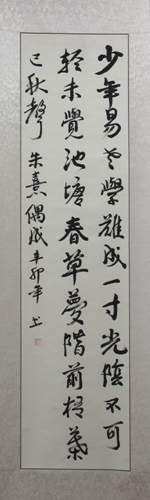 少年易老學難成一寸光陰不可
輕未覺池塘春草夢階前梧葉
已秋聲 朱熹偶成 辛卯年